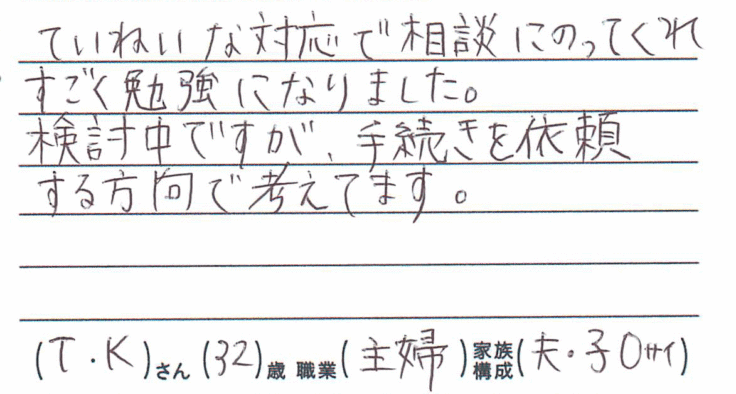 ていねいな対応で相談にのってくれ
すごく勉強になりました。
検討中ですが、手続きを依頼
する方向で考えてます。
(T・K)さん(32)歳 職業(主婦)家族構成(夫・子0サイ)